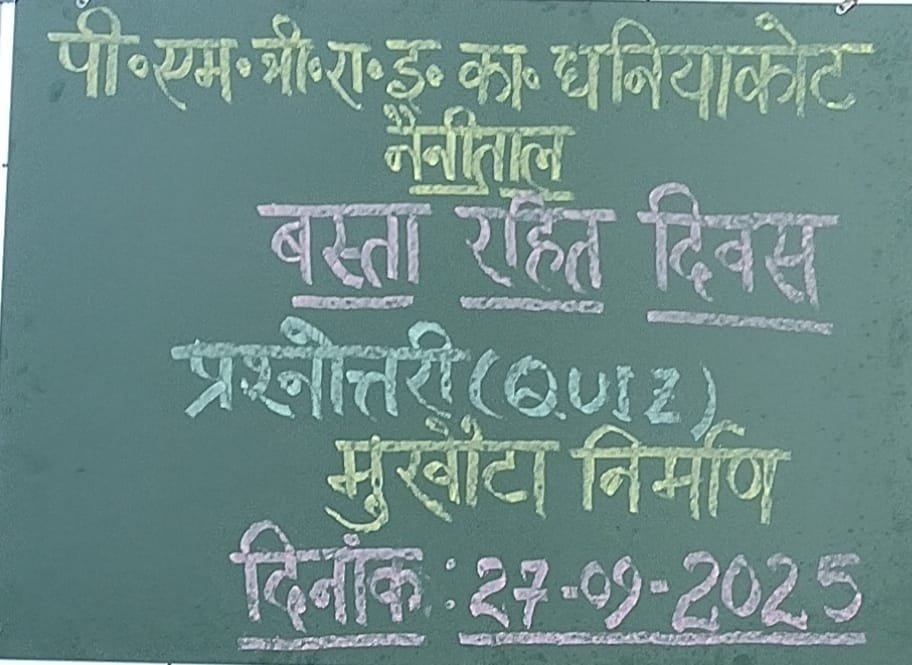 पी॰एम॰श्री॰रा॰इ॰ का॰ धनियाकोट
नैनीताल
बस्ता रहित दिवस
प्रश्नौत्तरी (QUIZ)
मुखौटा निर्माण
दिनांक : 27-09-2025